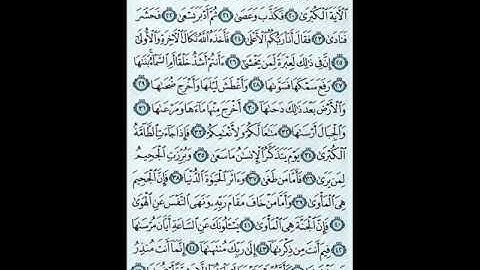 الْآيَةَ الْكُبْرَىٰ ٢٠ فَكَذَّبَ وَعَصَىٰ ٢١ ثُمَّ أَدْبَرَ يَسْعَىٰ ٢٢ فَحَشَرَ
فَنَادَىٰ ٢٣ فَقَالَ أَنَا رَبُّكُمُ الْأَعْلَىٰ ٢٤ فَأَخَذَهُ اللَّهُ نَكَالَ الْآخِرَةِ وَالْأُولَىٰ
٢٥ إِنَّ فِي ذَٰلِكَ لَعِبْرَةً لِّمَن يَخْشَىٰ ٢٦ ءَأَنتُمْ أَشَدُّ خَلْقًا أَمِ السَّمَاءُ بَنَاهَا
٢٧ رَفَعَ سَمْكَهَا فَسَوَّاهَا ٢٨ وَأَغْطَشَ لَيْلَهَا وَأَخْرَجَ ضُحَاهَا ٢٩
وَالْأَرْضَ بَعْدَ ذَٰلِكَ دَحَاهَا ٣٠ أَخْرَجَ مِنْهَا مَاءَهَا وَمَرْعَاهَا ٣١
وَالْجِبَالَ أَرْسَاهَا ٣٢ مَتَاعًا لَّكُمْ وَلِأَنْعَامِكُمْ ٣٣ فَإِذَا جَاءَتِ الطَّامَّةُ
الْكُبْرَىٰ ٣٤ يَوْمَ يَتَذَكَّرُ الْإِنسَانُ مَا سَعَىٰ ٣٥ وَبُرِّزَتِ الْجَحِيمُ
لِمَن يَرَىٰ ٣٦ فَأَمَّا مَن طَغَىٰ ٣٧ وَءَاثَرَ الْحَيَاةَ الدُّنْيَا ٣٨ فَإِنَّ الْجَحِيمَ
هِيَ الْمَأْوَىٰ ٣٩ وَأَمَّا مَنْ خَافَ مَقَامَ رَبِّهِ وَنَهَى النَّفْسَ عَنِ الْهَوَىٰ
٤٠ فَإِنَّ الْجَنَّةَ هِيَ الْمَأْوَىٰ ٤١ يَسْأَلُونَكَ عَنِ السَّاعَةِ أَيَّانَ مُرْسَاهَا
٤٢ فِيمَ أَنتَ مِن ذِكْرَاهَا ٤٣ إِلَىٰ رَبِّكَ مُنتَهَاهَا ٤٤ إِنَّمَا أَنتَ مُنذِرُ